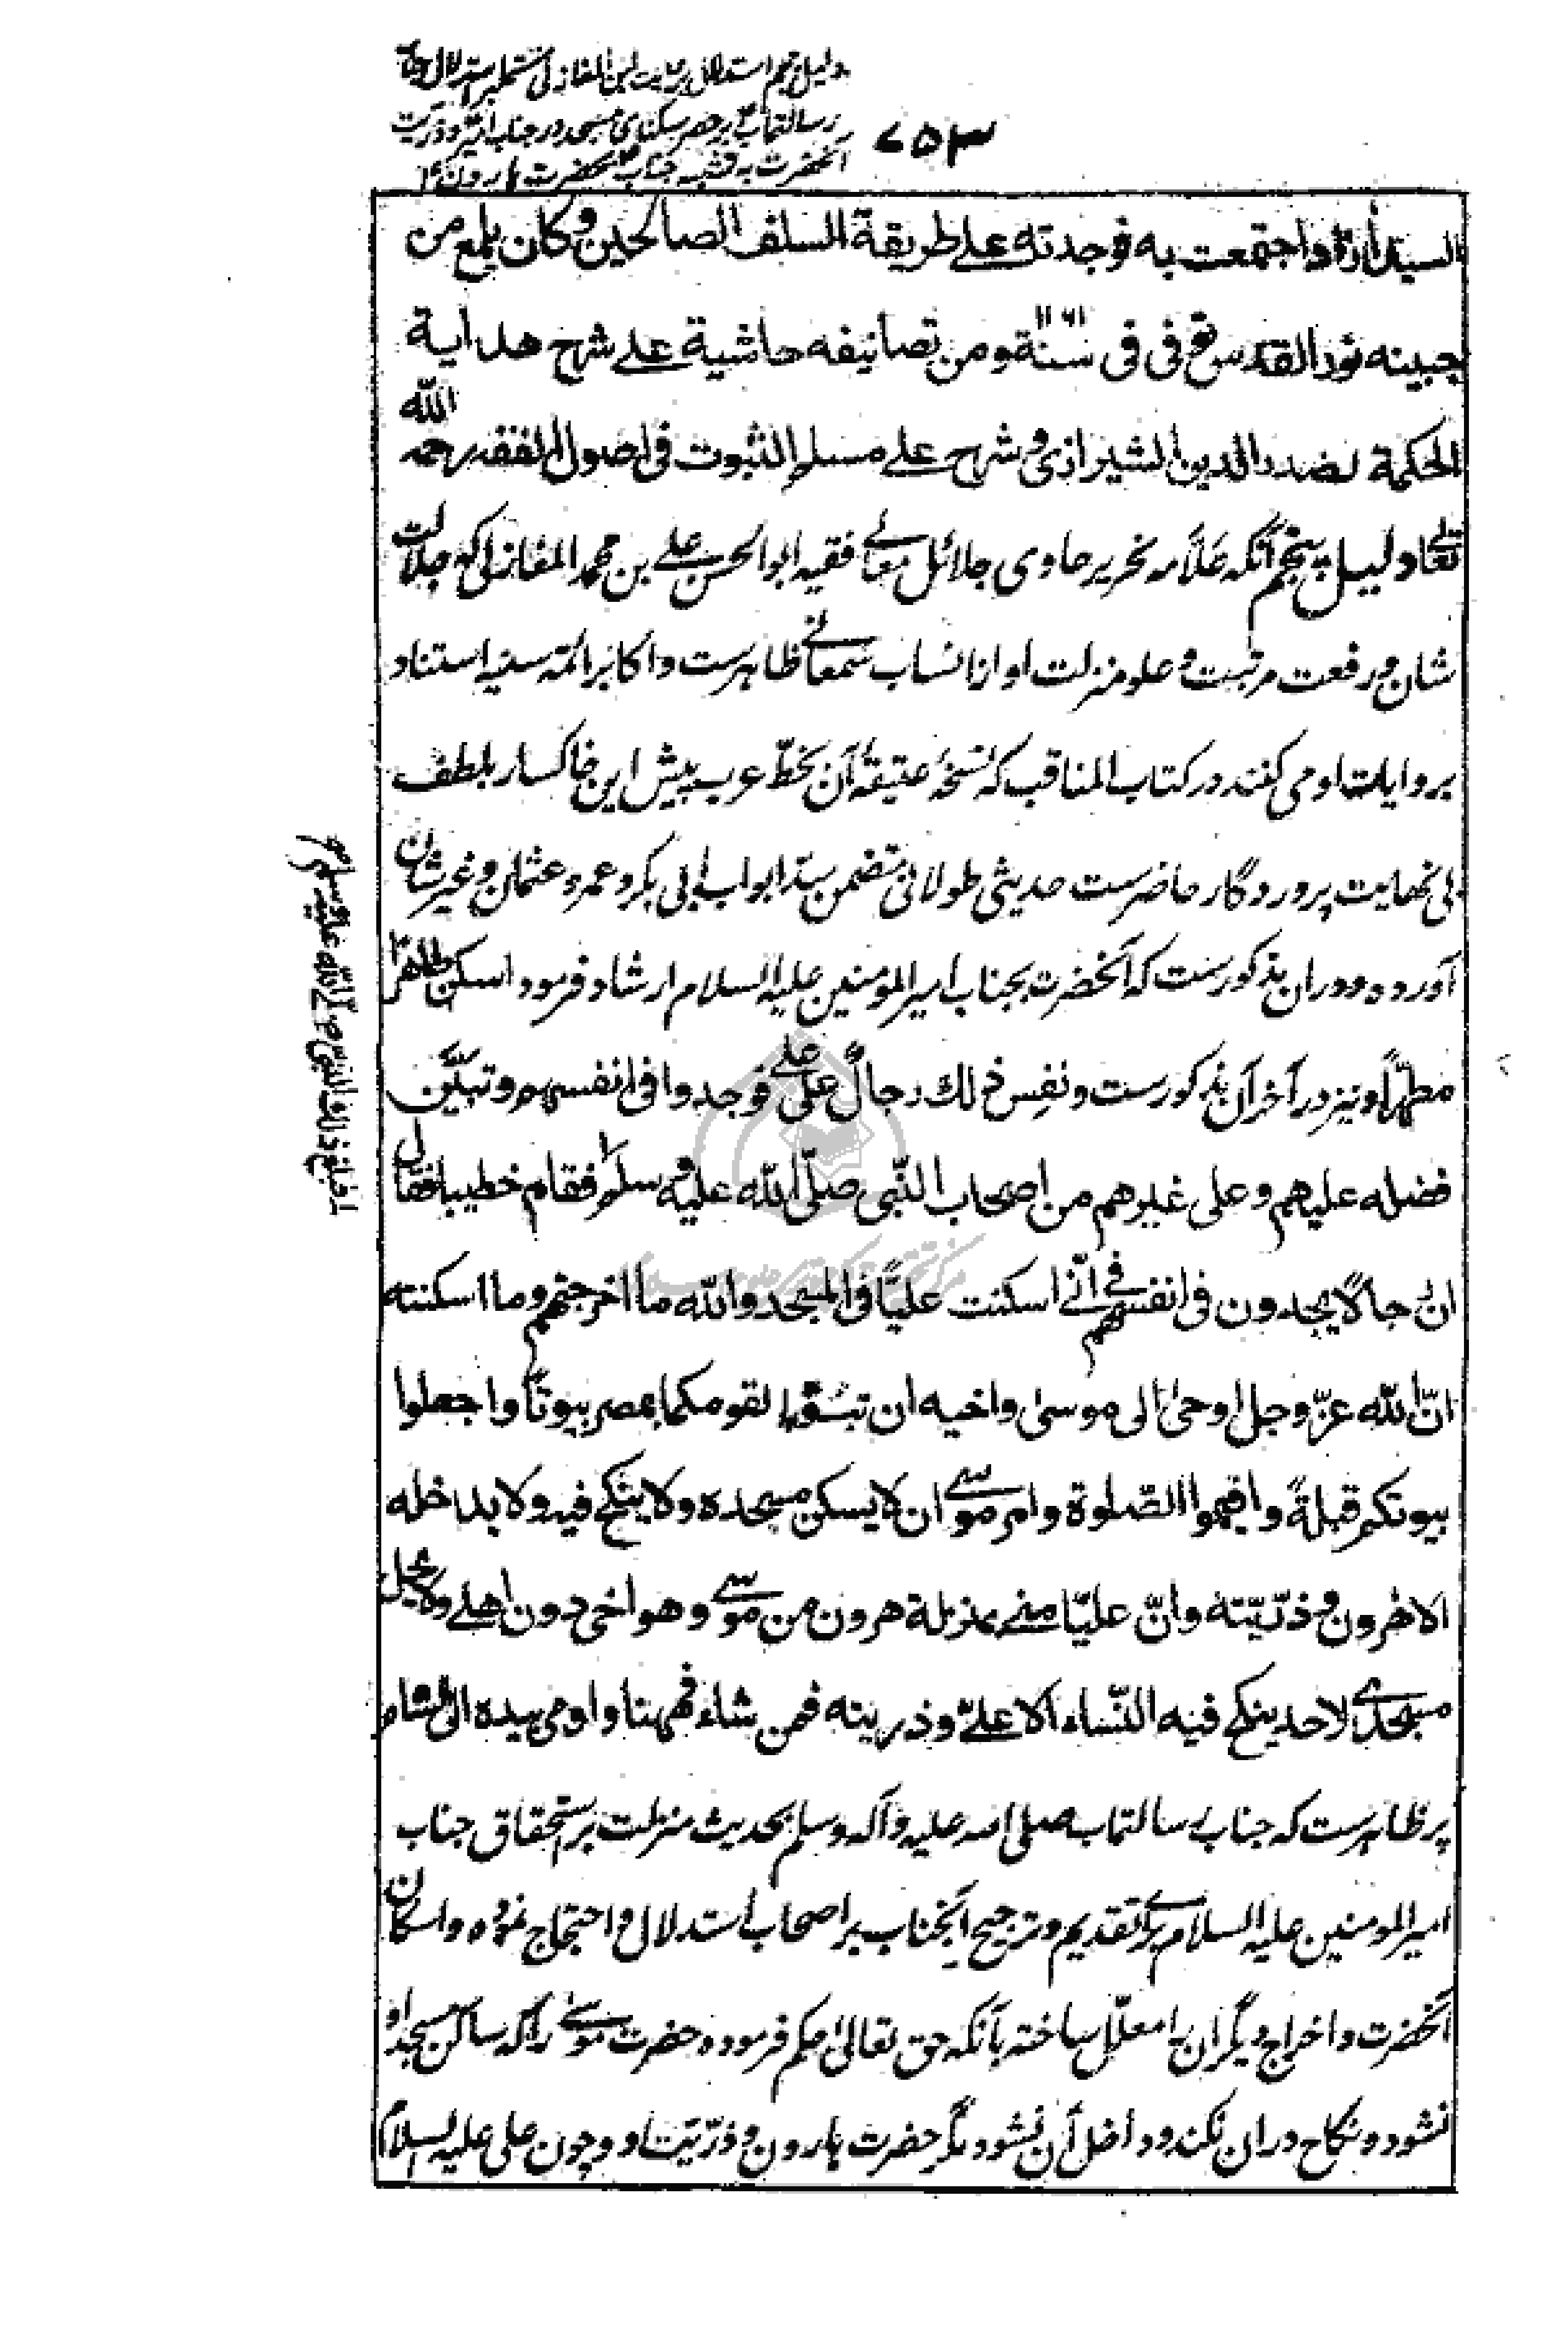 دلیل پنجم استدلال بروایت ابن المغازلی مشتمل بر استدلال جناب
رسالتمآب بر حصر سکنای مسجد در جناب امیر و ذریت
آنحضرت به تشبیه جناب بحضرت هارون ع
۷۵۳
السید ازادا واجتمعت به فوجدته علی طریقة السلف الصالحین وکان یلمع من
جبینه نور القدس توفی فی سنة ۱۱۶۱ ومن تصانیفه حاشیة علی شرح هدایة
الحکمة لصدر الدین الشیرازی وشرح علی مسلم الثبوت فی اصول الفقه رحمه الله
تعالی دلیل پنجم آنکه علامه نحریر حاوی جلائل معالی فقیه ابو الحسن علی بن محمد المغازلی که جلالت
شان و رفعت مرتبت و علو منزلت او از انساب سمعانی ظاهرست و اکابر ائمه سنیه استناد
بروایات او می کنند در کتاب المناقب که نسخهٔ عتیقهٔ آن بخط عرب پیش این خاکسار بلطف
بی نهایت پروردگار حاضرست حدیثی طولانی متضمن سد ابواب ابی بکر و عمر و عثمان و غیر شان
آورده و دران مذکورست که آنحضرت بجناب امیر المؤمنین علیه السلام ارشاد فرمود اسکن طاهرا
مطهّراً و نیز در آخر آن مذکورست ونفس ذلك رجالٌ علی علی فوجدوا فی انفسهم وتبیّن
فضله علیهم وعلی غیرهم من اصحاب النّبی صلّی الله علیه وسلم فقام خطیبا فقال
انّ رجالاً یجدون فی انفسهم فی انّی اسکنت علیّاً فی المسجد والله ما اخرجتهم وما اسکنته
انّ الله عزّ وجل اوحیٰ الی موسیٰ واخیه ان تبوّءا لقومکما بمصر بیوتاً واجعلوا
بیوتکم قبلةً واقیموا الصّلوة وامر موسی ان لا یسکن مسجده ولا ینکح فیه ولا یدخله
الا هرون وذرّیّته وانّ علیّا منی بمنزلة هرون من موسی وهو اخی دون اهلی ولا یحل
مسجدی لاحد ینکح فیه النّساء الا علیّ وذریته فمن شاء فههنا واومی بیده الی الشام
پر ظاهرست که جناب رسالتمآب صلی الله علیه وآله وسلم بحدیث منزلت بر استحقاق جناب
امیر المومنین علیه السلام برای تقدیم و ترجیح آنجناب بر اصحاب استدلال و احتجاج نموده و اسکان
آنحضرت و اخراج دیگران را معلّل ساخته بآنکه حق تعالیٰ حکم فرموده حضرت موسیٰ را که ساکن مسجد او
نشود و نکاح دران نکند و داخل آن نشود مگر حضرت هارون و ذرّیّت او و چون علی علیه السلام